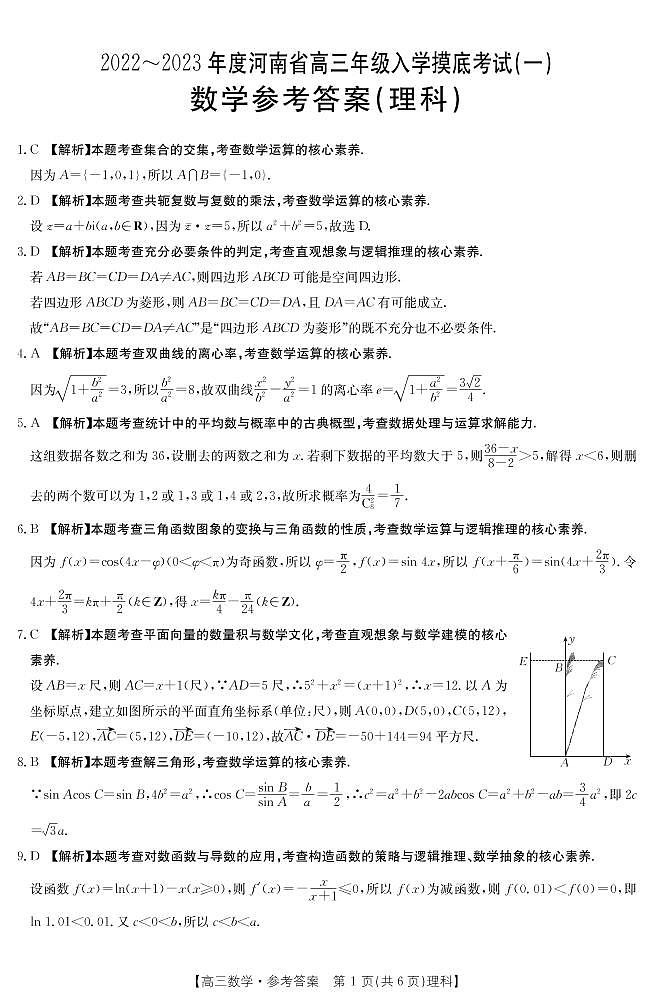 2022～2023 年度河南省高三年级入学摸底考试(一)
数学参考答案(理科)
1. C 【解析】本题考查集合的交集,考查数学运算的核心素养.
因为 A={-1,0,1},所以 A∩B={-1,0}.
2. D 【解析】本题考查共轭复数与复数的乘法,考查数学运算的核心素养.
设 z=a+bi(a,b∈R),因为 z̄·z=5,所以 a²+b²=5,故选 D.
3. D 【解析】本题考查充分必要条件的判定,考查直观想象与逻辑推理的核心素养.
若 AB=BC=CD=DA≠AC,则四边形 ABCD 可能是空间四边形.
若四边形 ABCD 为菱形,则 AB=BC=CD=DA,且 DA=AC 有可能成立.
故“AB=BC=CD=DA≠AC”是“四边形 ABCD 为菱形”的既不充分也不必要条件.
4. A 【解析】本题考查双曲线的离心率,考查数学运算的核心素养.
因为√(1+b²/a²)=3,所以b²/a²=8,故双曲线x²/b²-y²/a²=1 的离心率 e=√(1+a²/b²)=3√2/4.
5. A 【解析】本题考查统计中的平均数与概率中的古典概型,考查数据处理与运算求解能力.
这组数据各数之和为 36,设删去的两数之和为 x.若剩下数据的平均数大于 5,则(36-x)/(8-2)>5,解得 x<6,则删
去的两个数可以为 1,2 或 1,3 或 1,4 或 2,3,故所求概率为4/C₈²=1/7.
6. B 【解析】本题考查三角函数图象的变换与三角函数的性质,考查数学运算与逻辑推理的核心素养.
因为 f(x)=cos(4x-φ)(0<φ<π)为奇函数,所以 φ=π/2,f(x)=sin 4x,所以 f(x+π/6)=sin(4x+2π/3).令
4x+2π/3=kπ+π/2(k∈Z),得 x=kπ/4-π/24(k∈Z).
7. C 【解析】本题考查平面向量的数量积与数学文化,考查直观想象与数学建模的核心
素养.
设 AB=x 尺,则 AC=x+1(尺),∵AD=5 尺,∴5²+x²=(x+1)²,∴x=12.以 A 为
坐标原点,建立如图所示的平面直角坐标系(单位:尺),则 A(0,0),D(5,0),C(5,12),
E(-5,12),AC→=(5,12),DE→=(-10,12),故AC→·DE→=-50+144=94 平方尺.
y
E
B
C
A
D
x
8. B 【解析】本题考查解三角形,考查数学运算的核心素养.
∵sin Acos C=sin B,4b²=a²,∴cos C=sin B/sin A=b/a=1/2,∴c²=a²+b²-2abcos C=a²+b²-ab=3/4a²,即 2c
=√3a.
9. D 【解析】本题考查对数函数与导数的应用,考查构造函数的策略与逻辑推理、数学抽象的核心素养.
设函数 f(x)=ln(x+1)-x(x≥0),则 f′(x)=-x/(x+1)≤0,所以 f(x)为减函数,则 f(0.01)<f(0)=0,即
ln 1.01<0.01.又 c<0<b,所以 c<b<a.
【高三数学·参考答案 第 1 页(共 6 页)理科】